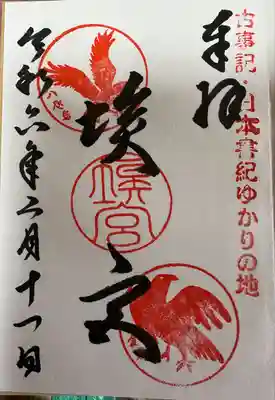 古事記・日本書紀ゆかりの地
奉拝
埃宮
埃宮
八咫烏
令和六年二月十一日